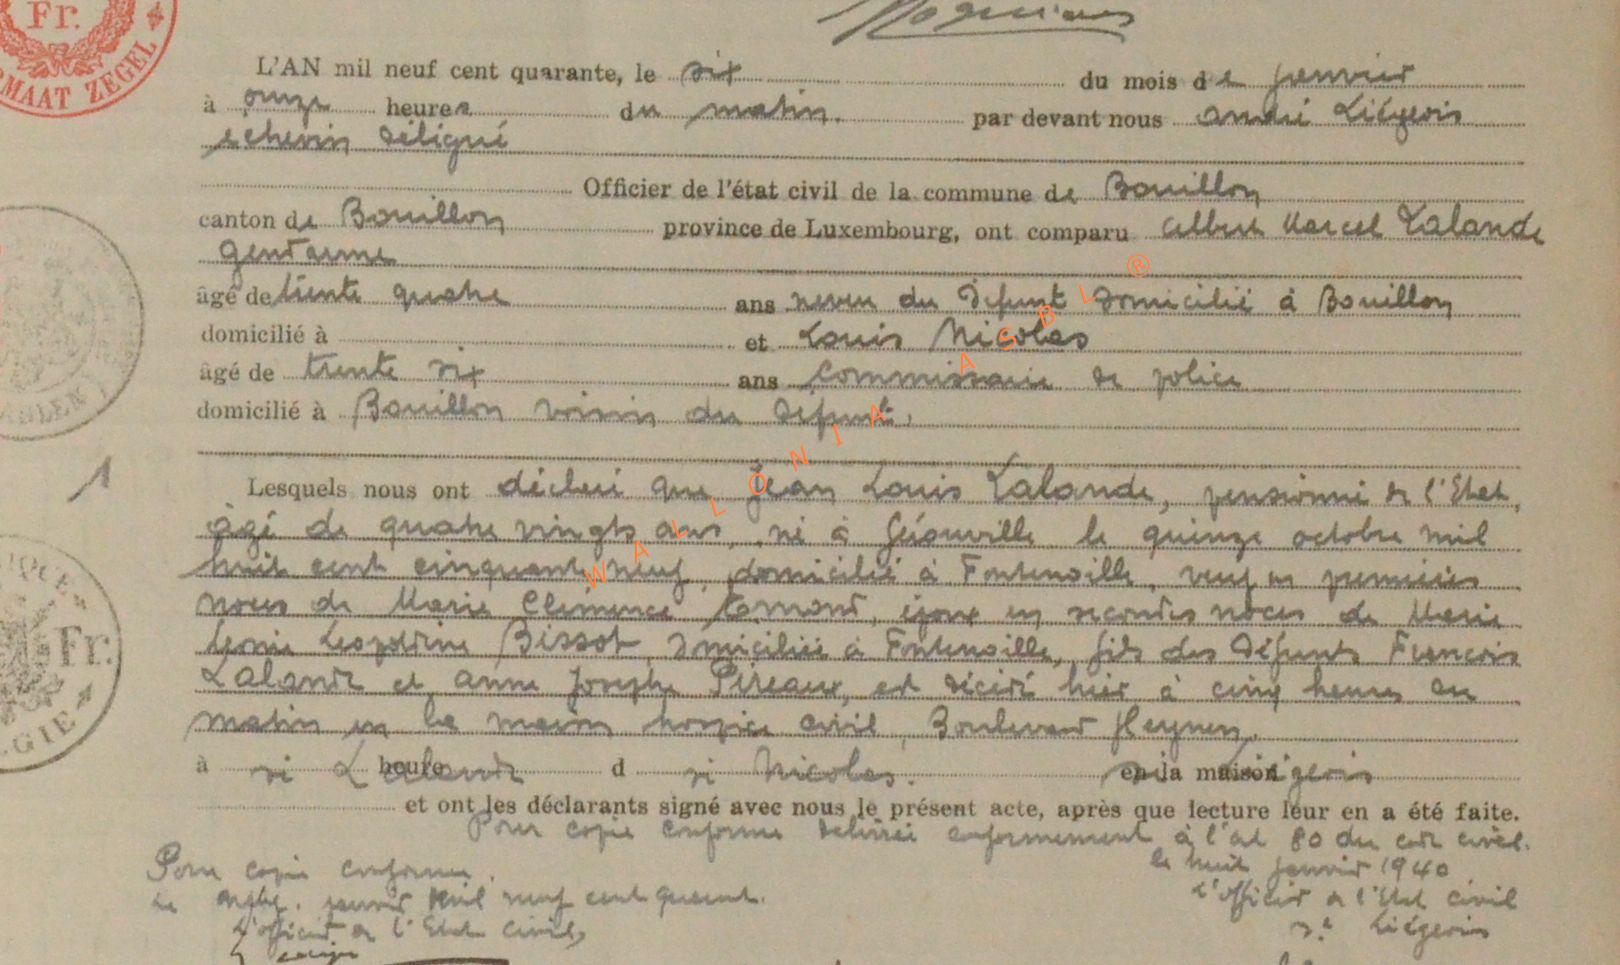 Fr.
MAAT ZEGEL
L'AN mil neuf cent quarante, le six du mois de janvier
à onze heures du matin. par devant nous André Liégeois
échevin délégué
Officier de l'état civil de la commune de Bouillon
canton de Bouillon province de Luxembourg, ont comparu Albert Marcel Lalande
gendarme
âgé de trente quatre ans neveu du défunt domicilié à Bouillon
domicilié à et Louis Nicolas
âgé de trente six ans commissaire de police
domicilié à Bouillon voisin du défunt.
1
Lesquels nous ont déclaré que Jean Louis Lalande, pensionné de l'Etat,
âgé de quatre vingts ans, né à Gérouville le quinze octobre mil
huit cent cinquante neuf, domicilié à Fontenoille, veuf en premières
noces de Marie Clémence Lemond, époux en secondes noces de Marie
Leonie Leopoldine Bissot, domiciliée à Fontenoille, fils des défunts Francois
Lalande et Anne Josephe Pireaux, est décédé hier à cinq heures du
matin en la maison hospice civil, Boulevard Heynen.
à heure d en la maison
si Lalande si Nicolas. si Liégeois
et ont les déclarants signé avec nous le présent acte, après que lecture leur en a été faite.
Pour copie conforme délivrée conformément à l'art 80 du code civil.
le huit janvier 1940
L'officier de l'Etat civil
sé Liégeois
Pour copie conforme.
Le janvier mil neuf cent quarante.
L'officier de l'Etat civil,
Fr.
WALLONIA ASBL ®